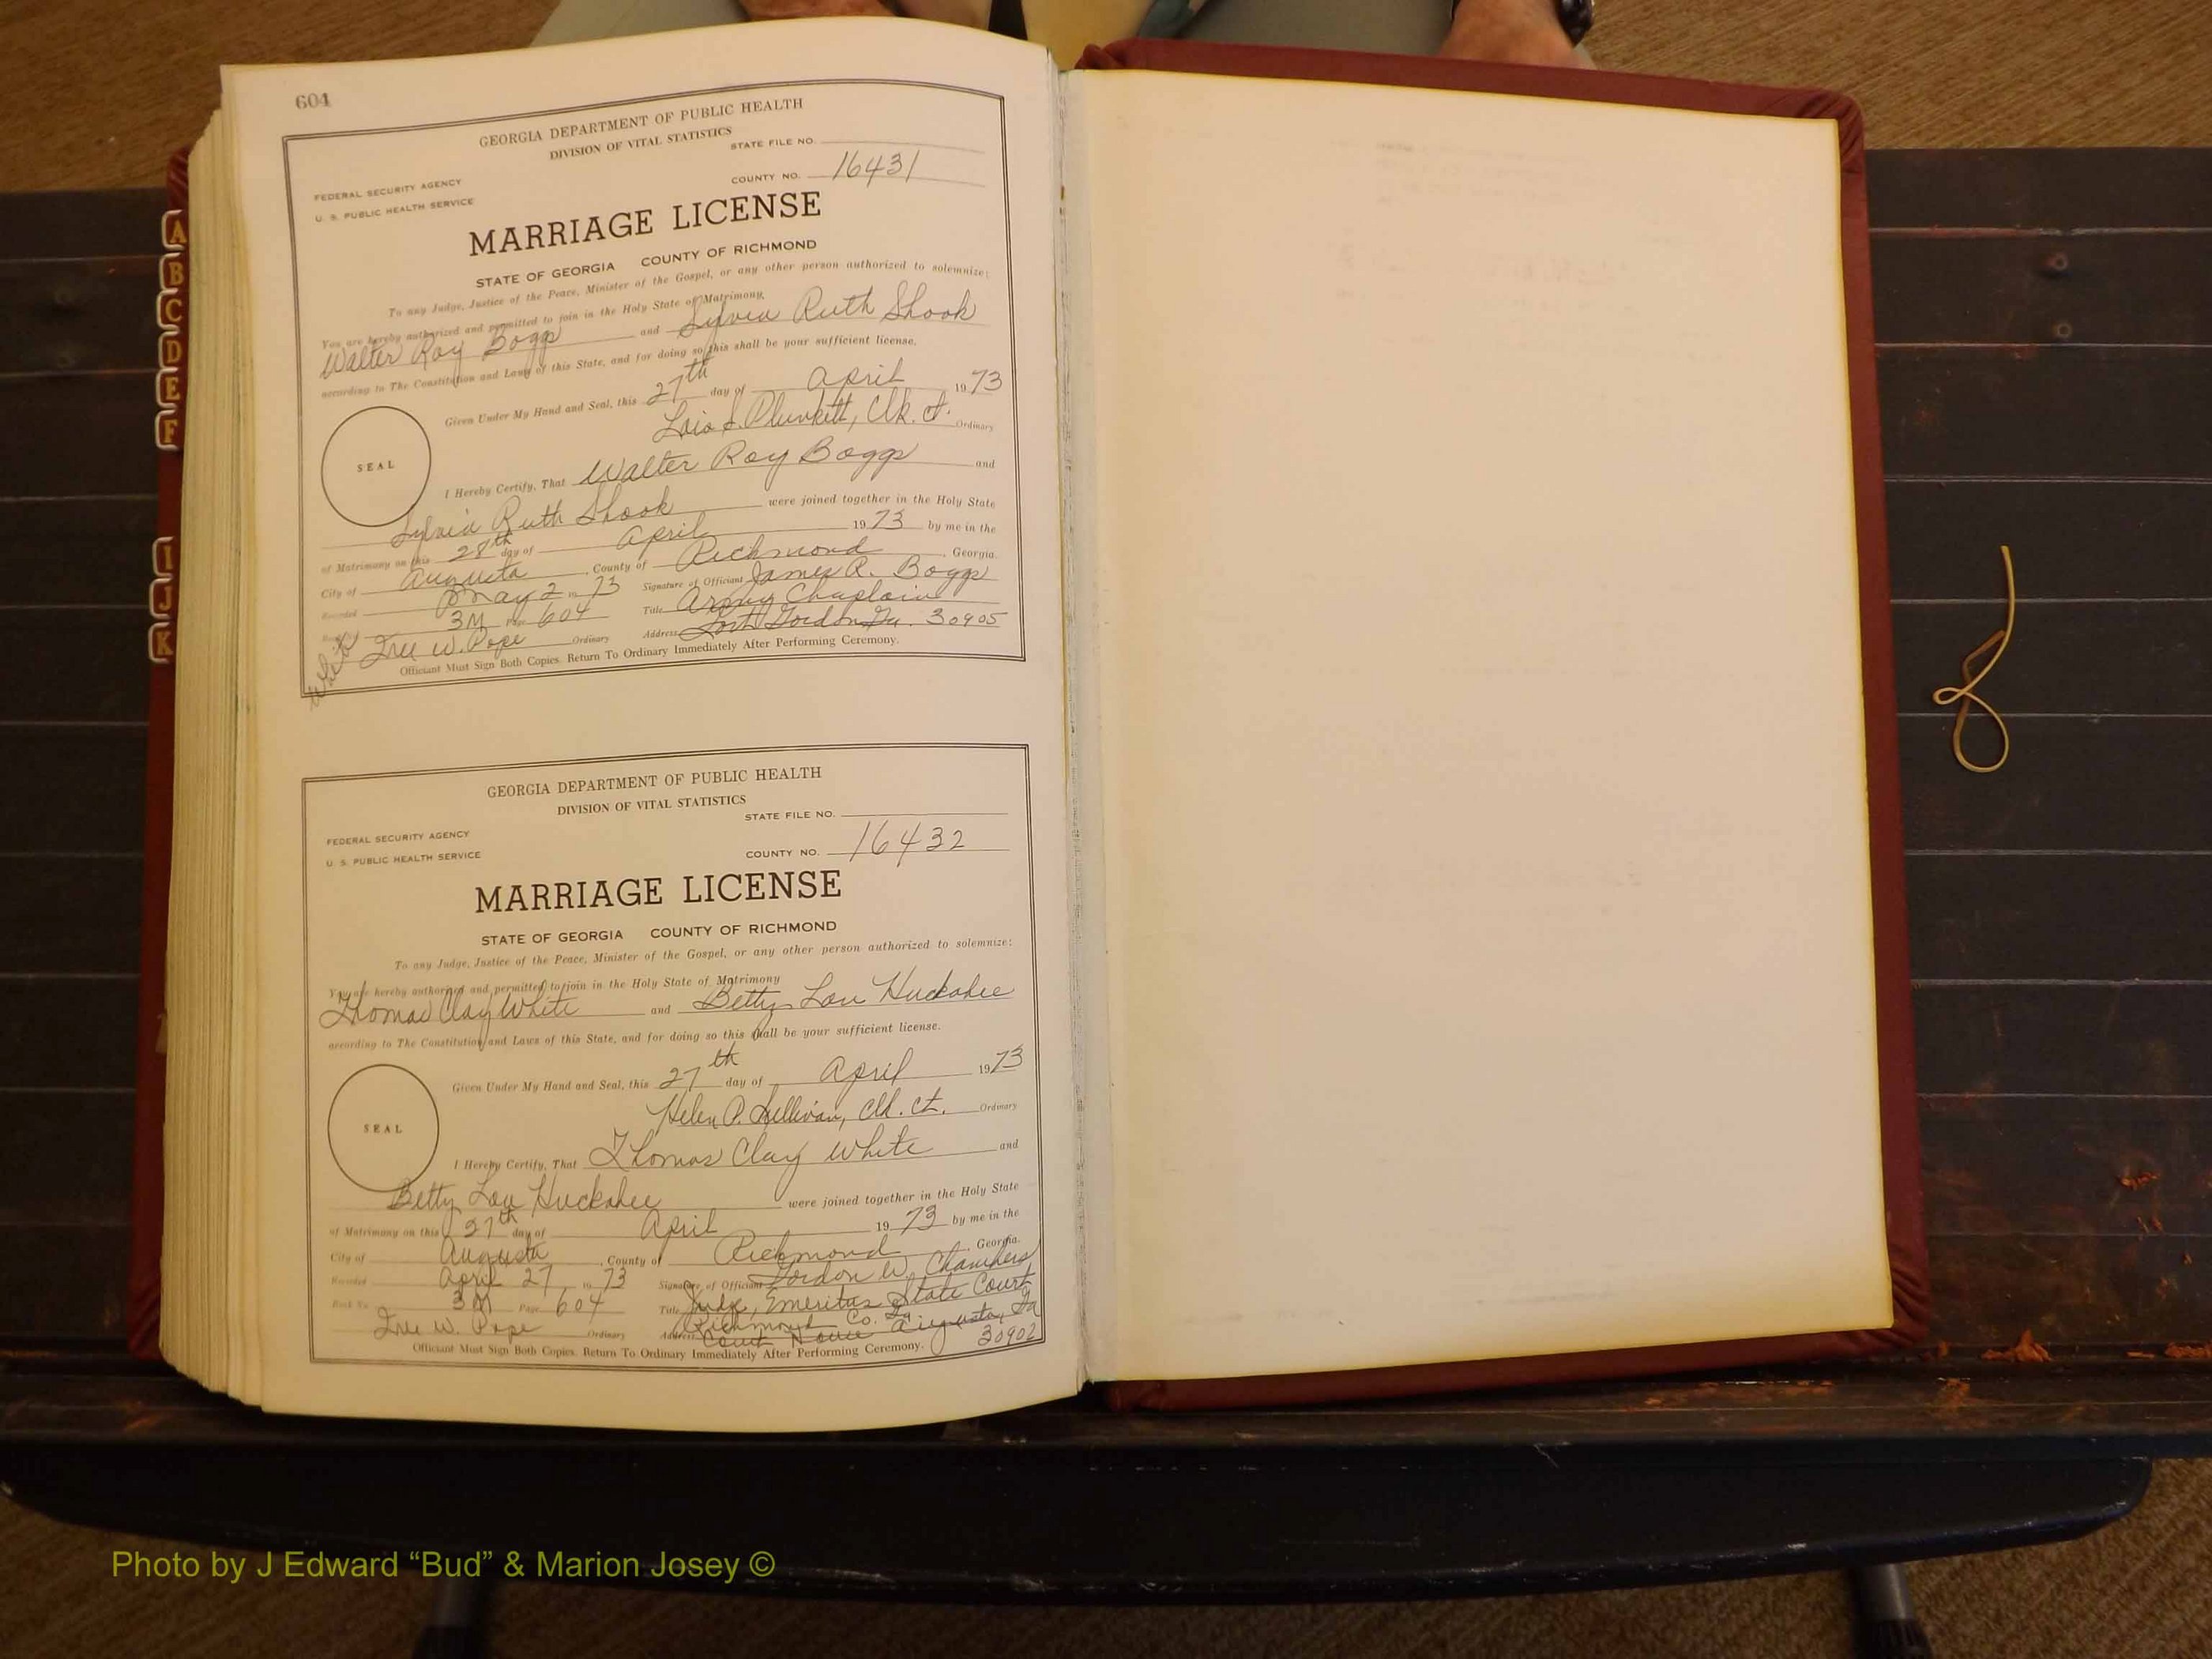 604
GEORGIA DEPARTMENT OF PUBLIC HEALTH
DIVISION OF VITAL STATISTICS
STATE FILE NO.
FEDERAL SECURITY AGENCY
U. S. PUBLIC HEALTH SERVICE
COUNTY NO. 16431
MARRIAGE LICENSE
STATE OF GEORGIA COUNTY OF RICHMOND
To any Judge, Justice of the Peace, Minister of the Gospel, or any other person authorized to solemnize:
You are hereby authorized and permitted to join in the Holy State of Matrimony,
Walter Roy Boggs and Sylvia Ruth Shook
according to The Constitution and Laws of this State, and for doing so this shall be your sufficient license.
Given Under My Hand and Seal, this 27th day of April 1973
Lois S. Plunkett, Clk. Ct. Ordinary
SEAL
I Hereby Certify, That Walter Roy Boggs and
Sylvia Ruth Shook were joined together in the Holy State
of Matrimony on this 28th day of April 1973 by me in the
City of Augusta, County of Richmond, Georgia.
Recorded May 2 1973 Signature of Officiant James R. Boggs
Book No. 3M Page 604 Title Army Chaplain
Ordinary Address Fort Gordon Ga. 30905
Officiant Must Sign Both Copies. Return To Ordinary Immediately After Performing Ceremony.
GEORGIA DEPARTMENT OF PUBLIC HEALTH
DIVISION OF VITAL STATISTICS
STATE FILE NO.
FEDERAL SECURITY AGENCY
U. S. PUBLIC HEALTH SERVICE
COUNTY NO. 16432
MARRIAGE LICENSE
STATE OF GEORGIA COUNTY OF RICHMOND
To any Judge, Justice of the Peace, Minister of the Gospel, or any other person authorized to solemnize:
You are hereby authorized and permitted to join in the Holy State of Matrimony
Thomas Clay White and Betty Lou Huckabee
according to The Constitution and Laws of this State, and for doing so this shall be your sufficient license.
Given Under My Hand and Seal, this 27th day of April 1973
Helen P. Sullivan, Clk. Ct. Ordinary
SEAL
I Hereby Certify, That Thomas Clay White and
Betty Lou Huckabee were joined together in the Holy State
of Matrimony on this 27th day of April 1973 by me in the
City of Augusta, County of Richmond, Georgia.
Recorded April 27 1973 Signature of Officiant Gordon W. Chambers
Book No. 3M Page 604 Title Judge, Emeritus State Court
Richmond Co. Ga
Ordinary Address Court House Augusta, Ga
30902
Officiant Must Sign Both Copies. Return To Ordinary Immediately After Performing Ceremony.
A
B
C
D
E
F
I
J
K
Photo by J Edward “Bud” & Marion Josey ©